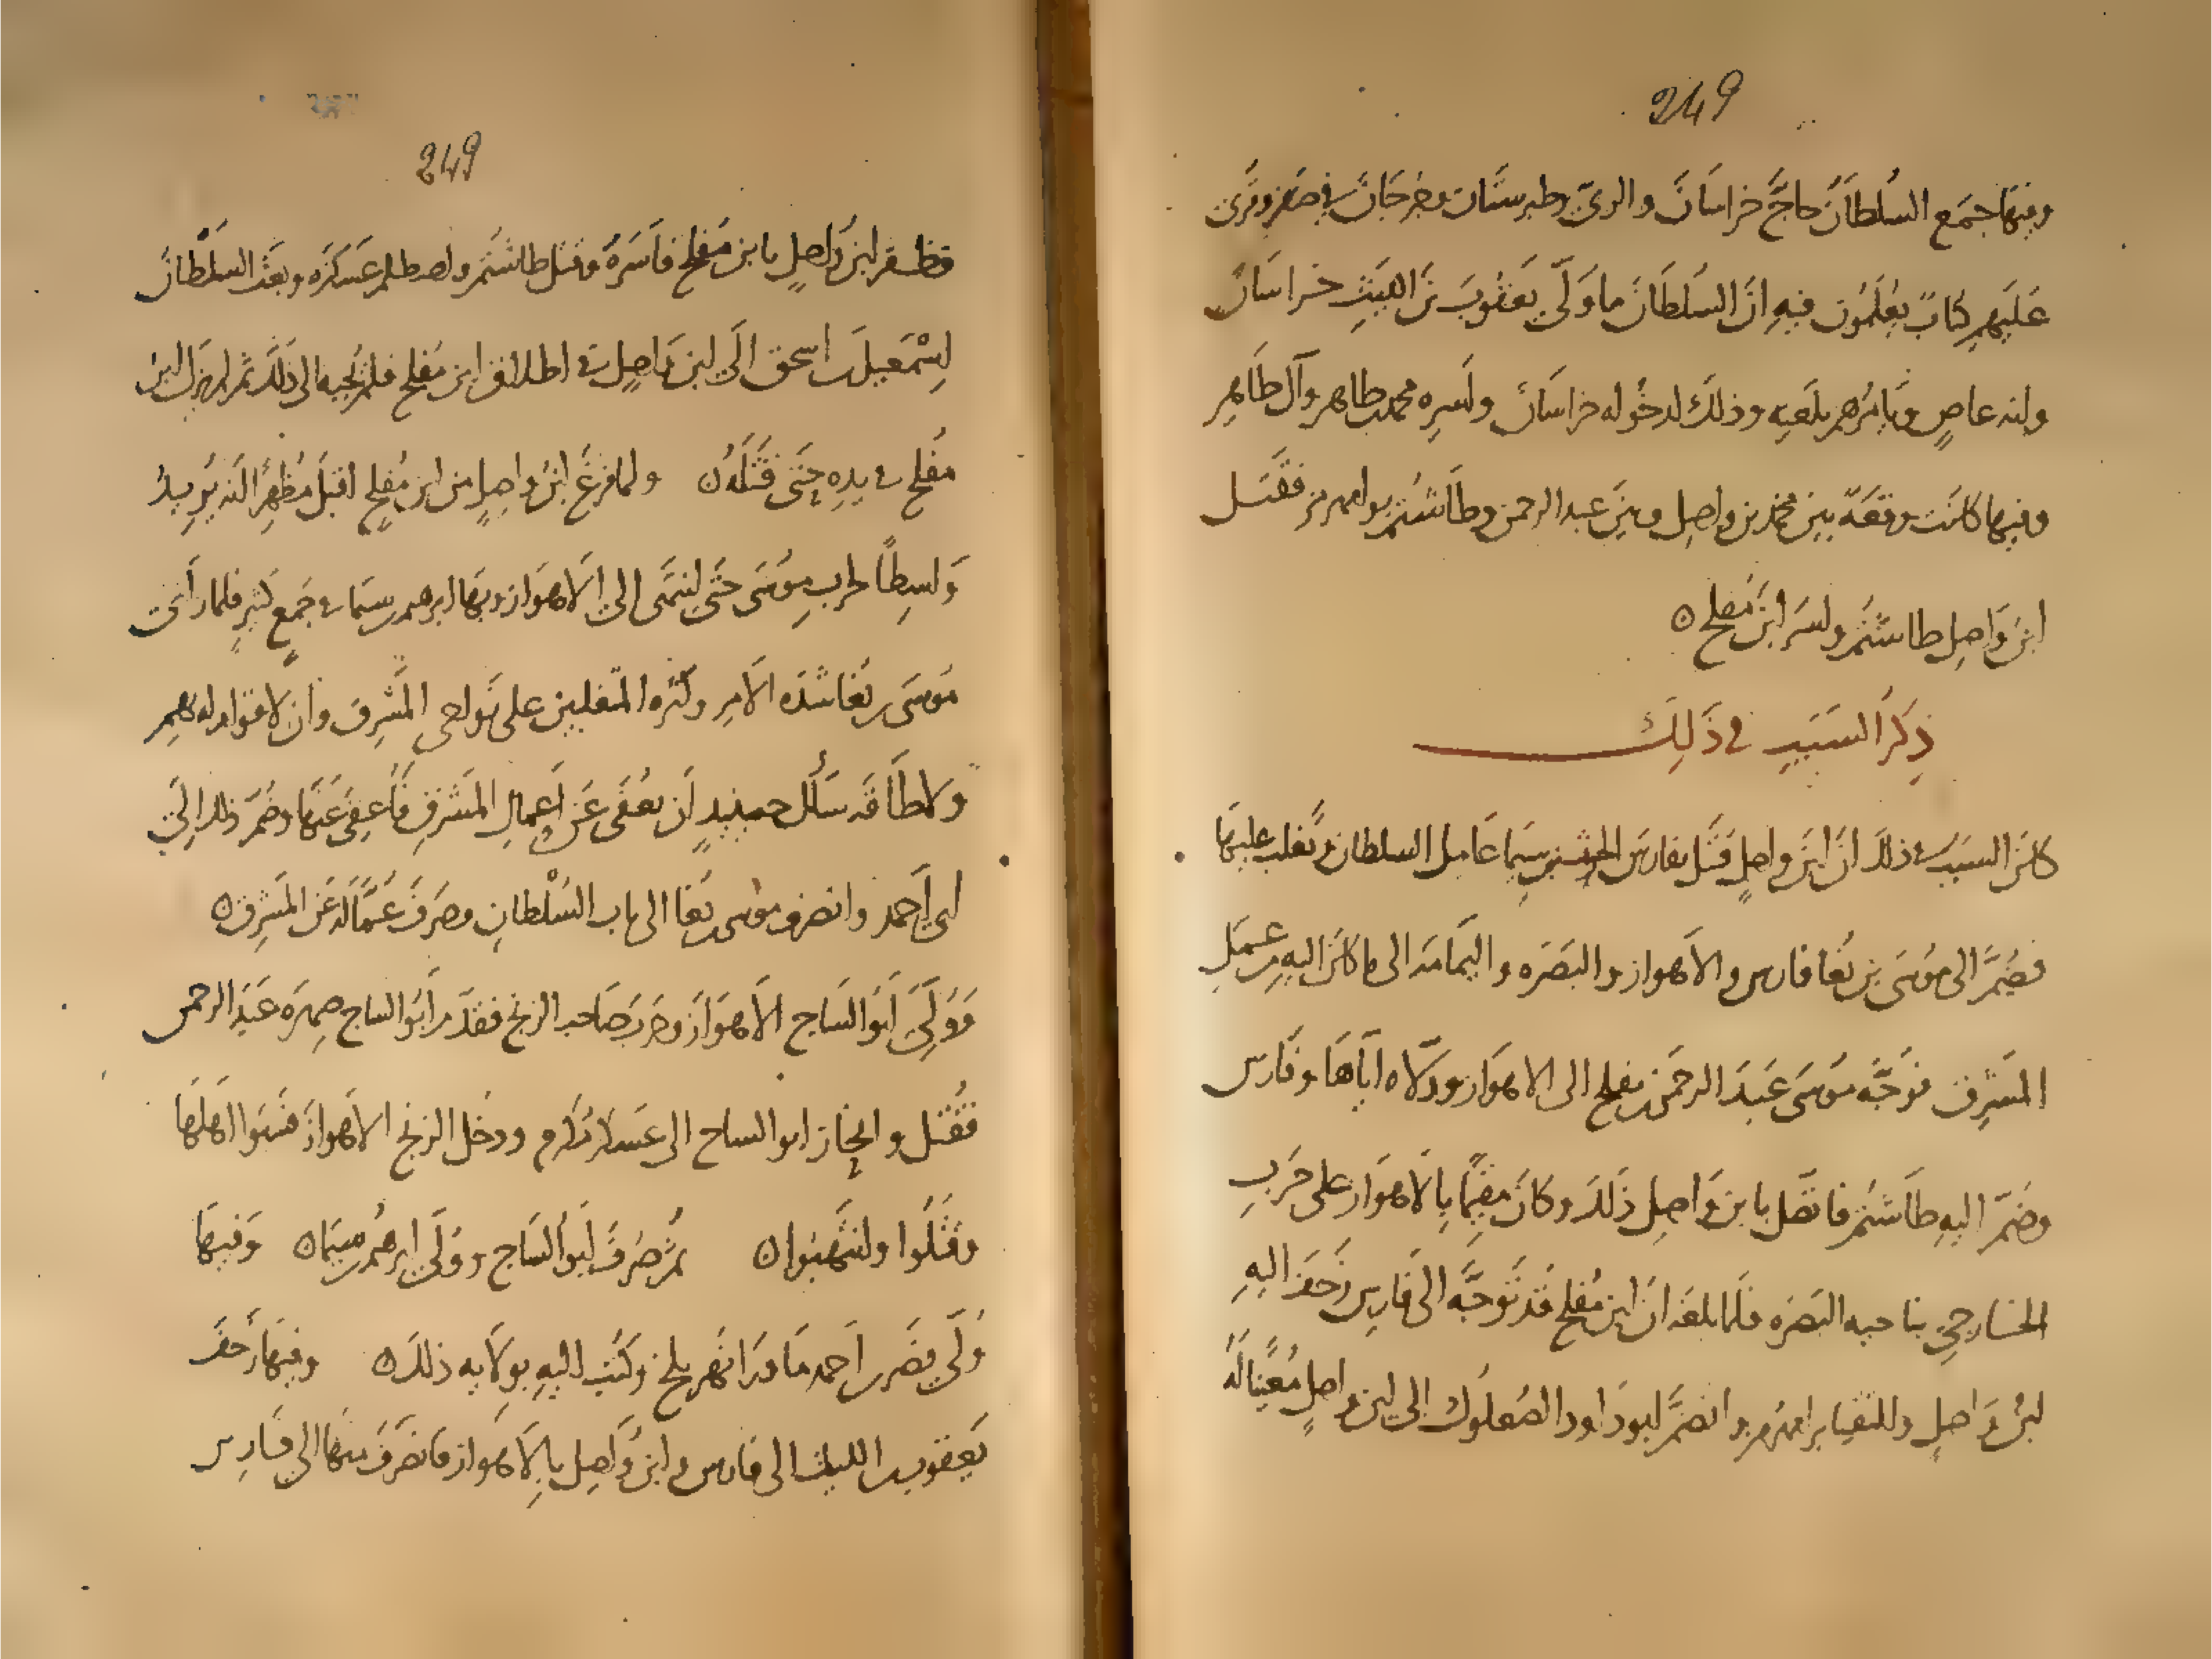 249
وفيها جمع السُلطانُ حاجَّ خراسَانَ والريّ وطبرستَان وجُرجَانَ في صفر وقُرئ
عَليهم كتابٌ يُعلَمُون فيه انَّ السُلطَانَ ما وَلَّى يَعقُوبَ بنَ الليَثِ خراسَانَ
وانه عاصٍ ويَامُرُهم بلعنه وذلكَ لدخُوله خراسَانَ واَسرِه محمد بن طاهر وآل طَاهِر
وفيها كانَت وقعَة بينَ محمّد بن واصِل وبينَ عبد الرحمن وطَاشتمُر برامهرمز فقَتَل
ابنُ وَاصِل طاشتمُر واسَر ابنَ مُفلح ٥
ذِكرُ السَبَبِ في ذَلِكَ
كانَ السَبَبُ في ذلكَ انَّ ابنَ واصِلٍ قَتَل بفارسَ الحرث بن سِيمَا عَامِل السلطان وتَغلب عليهَا
فضُمَّ الى مُوسَى بن بُغَا فارس والاَهواز والبَصَره واليَمَامَه الى ما كانَ اليه من عمَلِ
المَشرِق فوَجَّه مُوسَى عَبدَ الرحمَن بن مفلح الى الاهوَاز وولّاه اياهَا وفَارس
وضَمّ اليهِ طَاشتمُر فاتصَل بابن وَاصِل ذَلكَ وكانَ مقيمًا بالاَهوَاز على حَربِ
الخارجي بناحيه البَصَره فلَما بلغَه انَّ ابنَ مُفلح قَد توَجَّه الى فَارس زَحَف اليهِ
ابنُ وَاصِلٍ والتقيا برامهُرمز وانضمَّ ابو دَاود الصُعلوك الى ابن واصلٍ مُعينًا لَهُ
249
فظفر ابن وَاصلٍ بابن مُفلح فاَسَرَهُ وقتل طاشتمُر واصطلم عَسكَرَه وبعَث السُلطَانُ
اِسْمَعِيلَ بن اسحق الَى ابن وَاصِل في اطلاق ابن مُفلح فلم يُجبه الى ذلكَ ثم لم يزَل ابن
مفُلح في يدِه حتَّى قَتَلَهُ ٥ ولما فرغَ ابنُ واصِلٍ من ابن مُفلحٍ اقبلَ مُظهِرًا انَه يُريدُ
وَاسِطًا لحرب موُسَى حتَّى انتهَى الى الاَهوَاز وبهَا ابرهيم بن سيما في جَمعٍ كثيرٍ فلما رَأى
مُوسَى بن بُغا شدَه الاَمرِ وكثَره المتغلبين على نَواحي المَشرِق وان لا قوام له بهم
ولا طَاقَه سَأل حينيذٍ اَن يُعفَى عَن اَعمالِ المَشرقِ فأُعفِيَ عَنهَا وضُمَّ ذلك الى
ابي اَحمد وانصرفَ مُوسَى بن بُغا الى باب السُلْطان وصَرَفَ عُمّالَه عَن المَشرِق ٥
وَوُلِّيَ اَبُو السَاج الاَهوَازَ وحَربَ صَاحب الزنج فقدَّمَ اَبُو السَاج صِهرَه عَبدَ الرحمن
فقُتل وانحَاز ابو الساج الى عَسكر مُكرم ودخَل الزنج الاَهوازَ فسَبَوا اهلهَا
وقَتَلُوا وانتَهَبُوا ٥ ثُم صُرِفَ ابُو السَاج ووُلّي ابرهيم بن سِيمَا ٥ وَفيهَا
وُلّي نصَر بن اَحمد مَا ورَا نَهر بلخ وكَتب اليهِ بولَايه ذلكَ ٥ وفيهَا زَحَفَ
يَعقوب بن الليث الى فَارس وابنُ وَاصِل بالاَهوَاز فانصَرفَ منهَا الى فَارِس